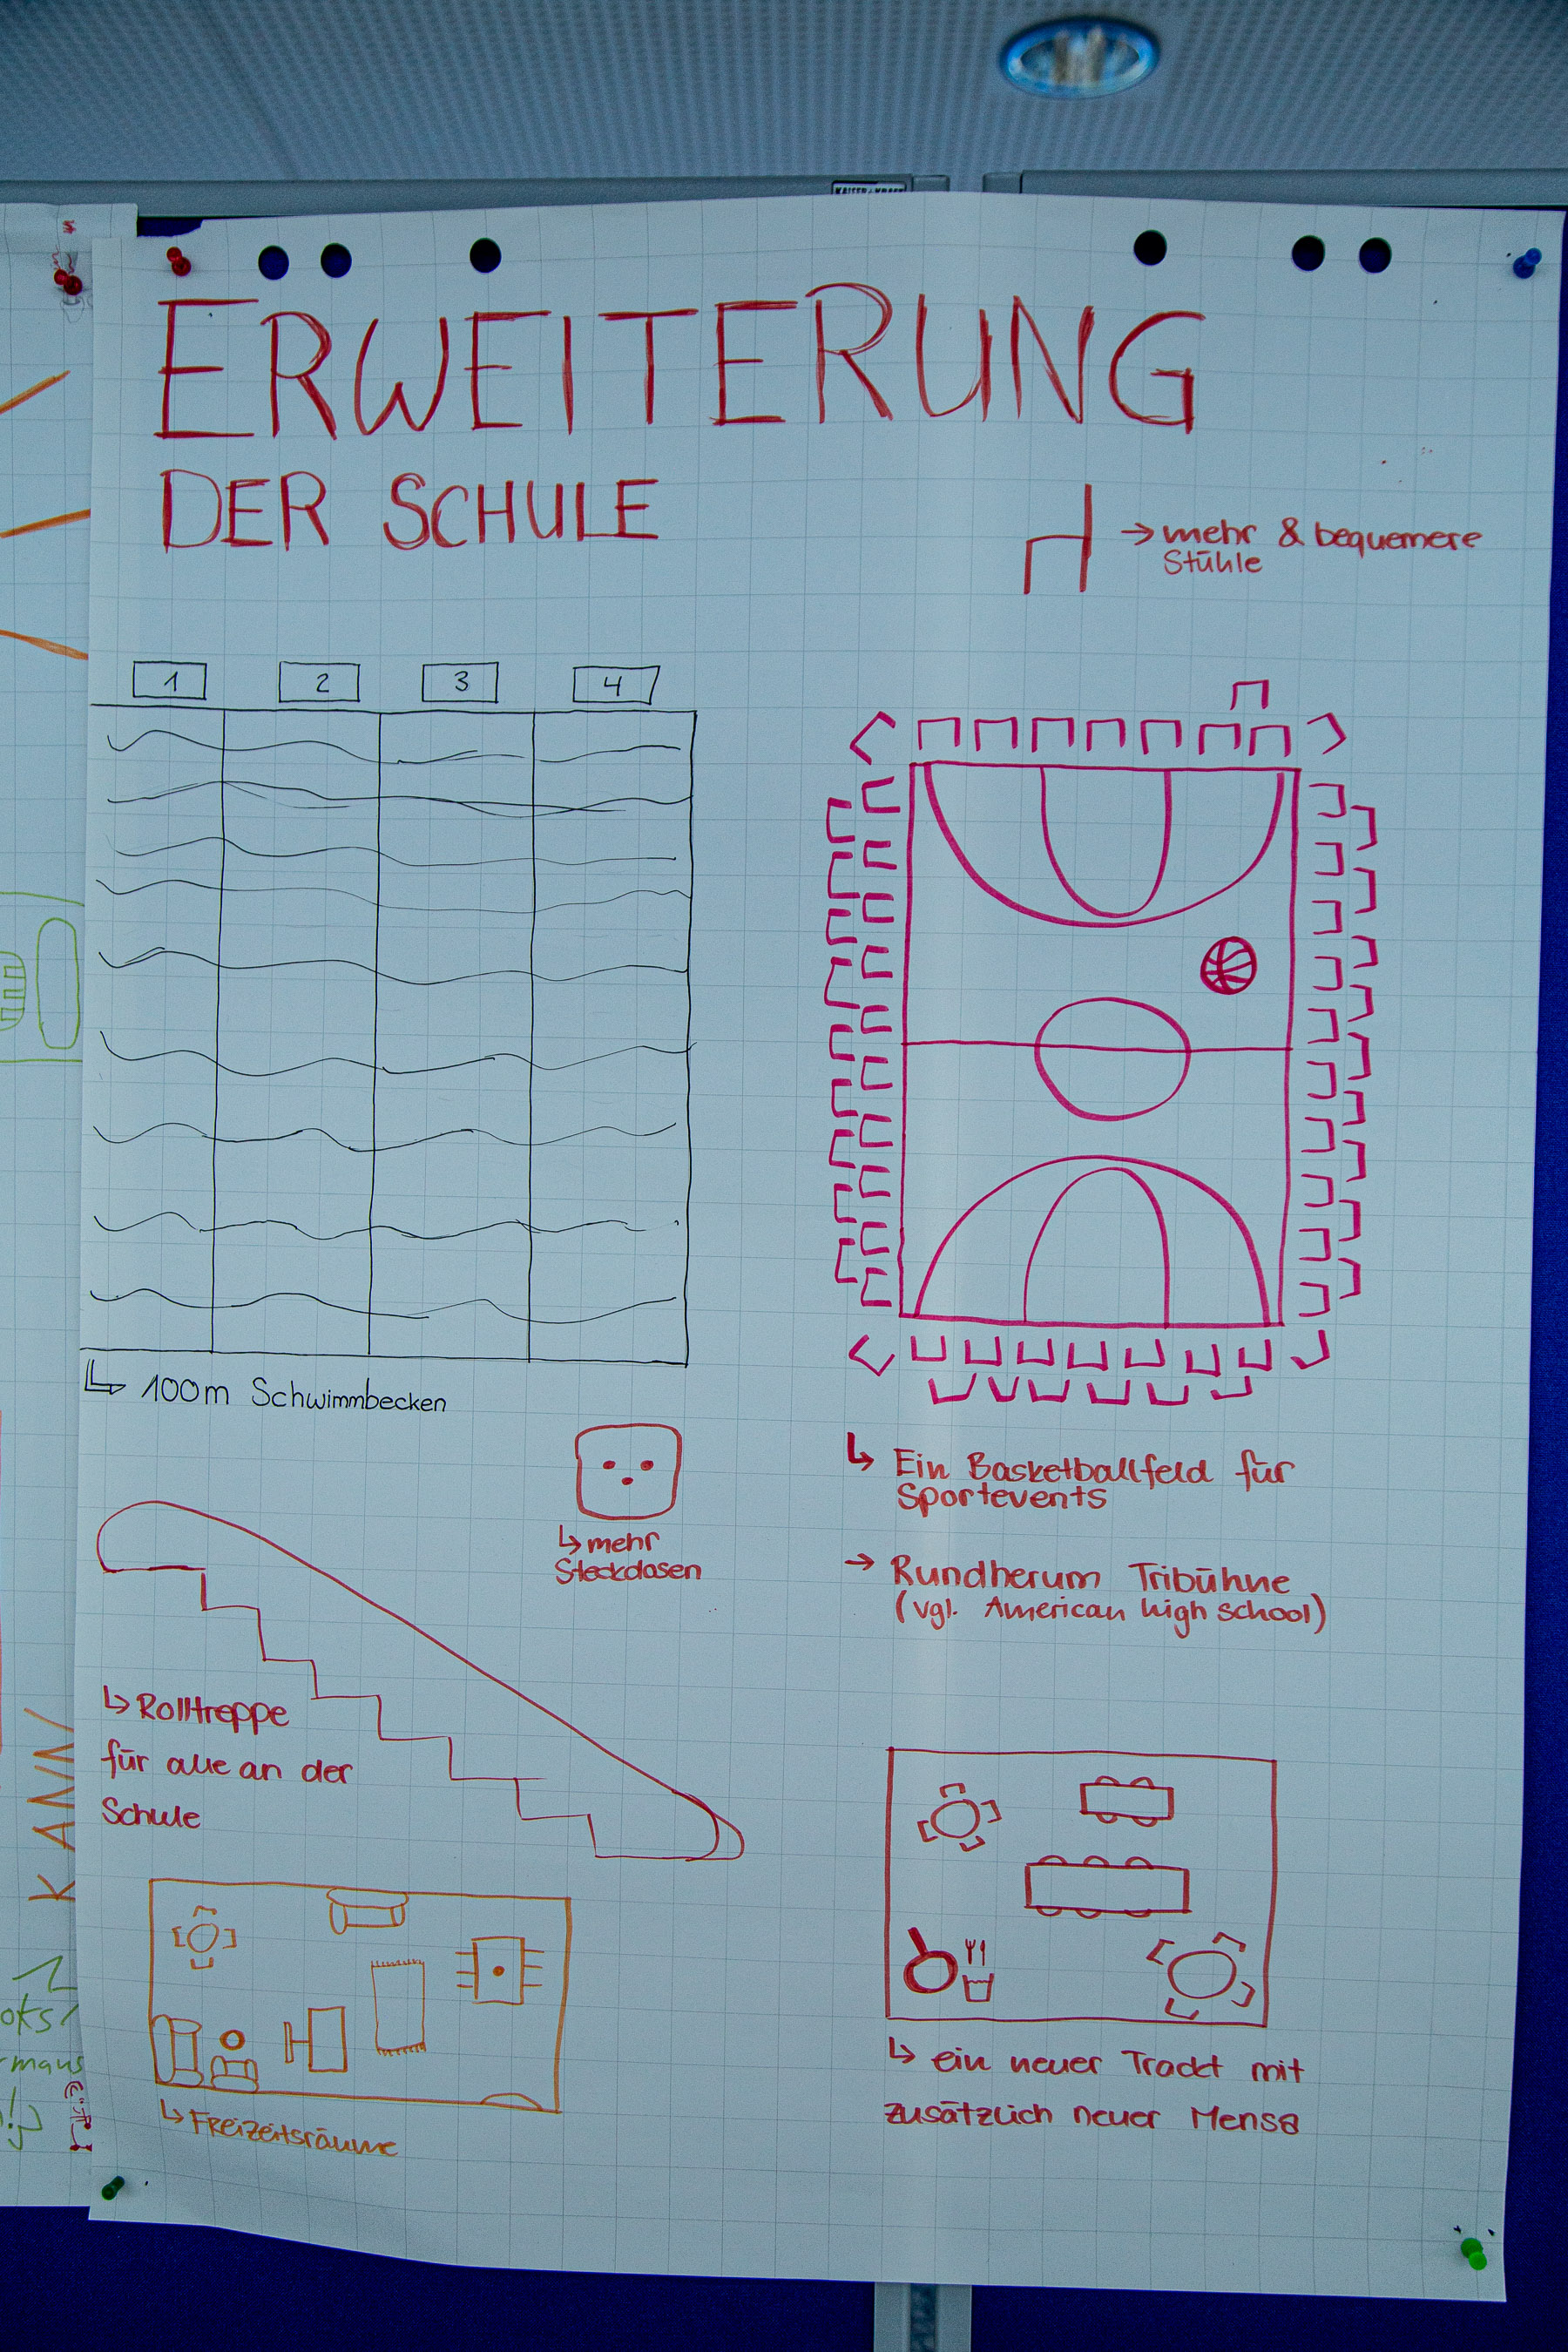 KAISER+KRAFT
ERWEITERUNG
DER SCHULE
→ mehr & bequemere
Stühle
1 2 3 4
↳ 100m Schwimmbecken
↳ mehr
Steckdosen
↳ Ein Basketballfeld für
Sportevents
→ Rundherum Tribühne
(vgl. American high school)
↳ Rolltreppe
für alle an der
Schule
↳ Freizeitsräume
↳ ein neuer Trackt mit
zusätzlich neuer Mensa
KANN
oks
rmaus